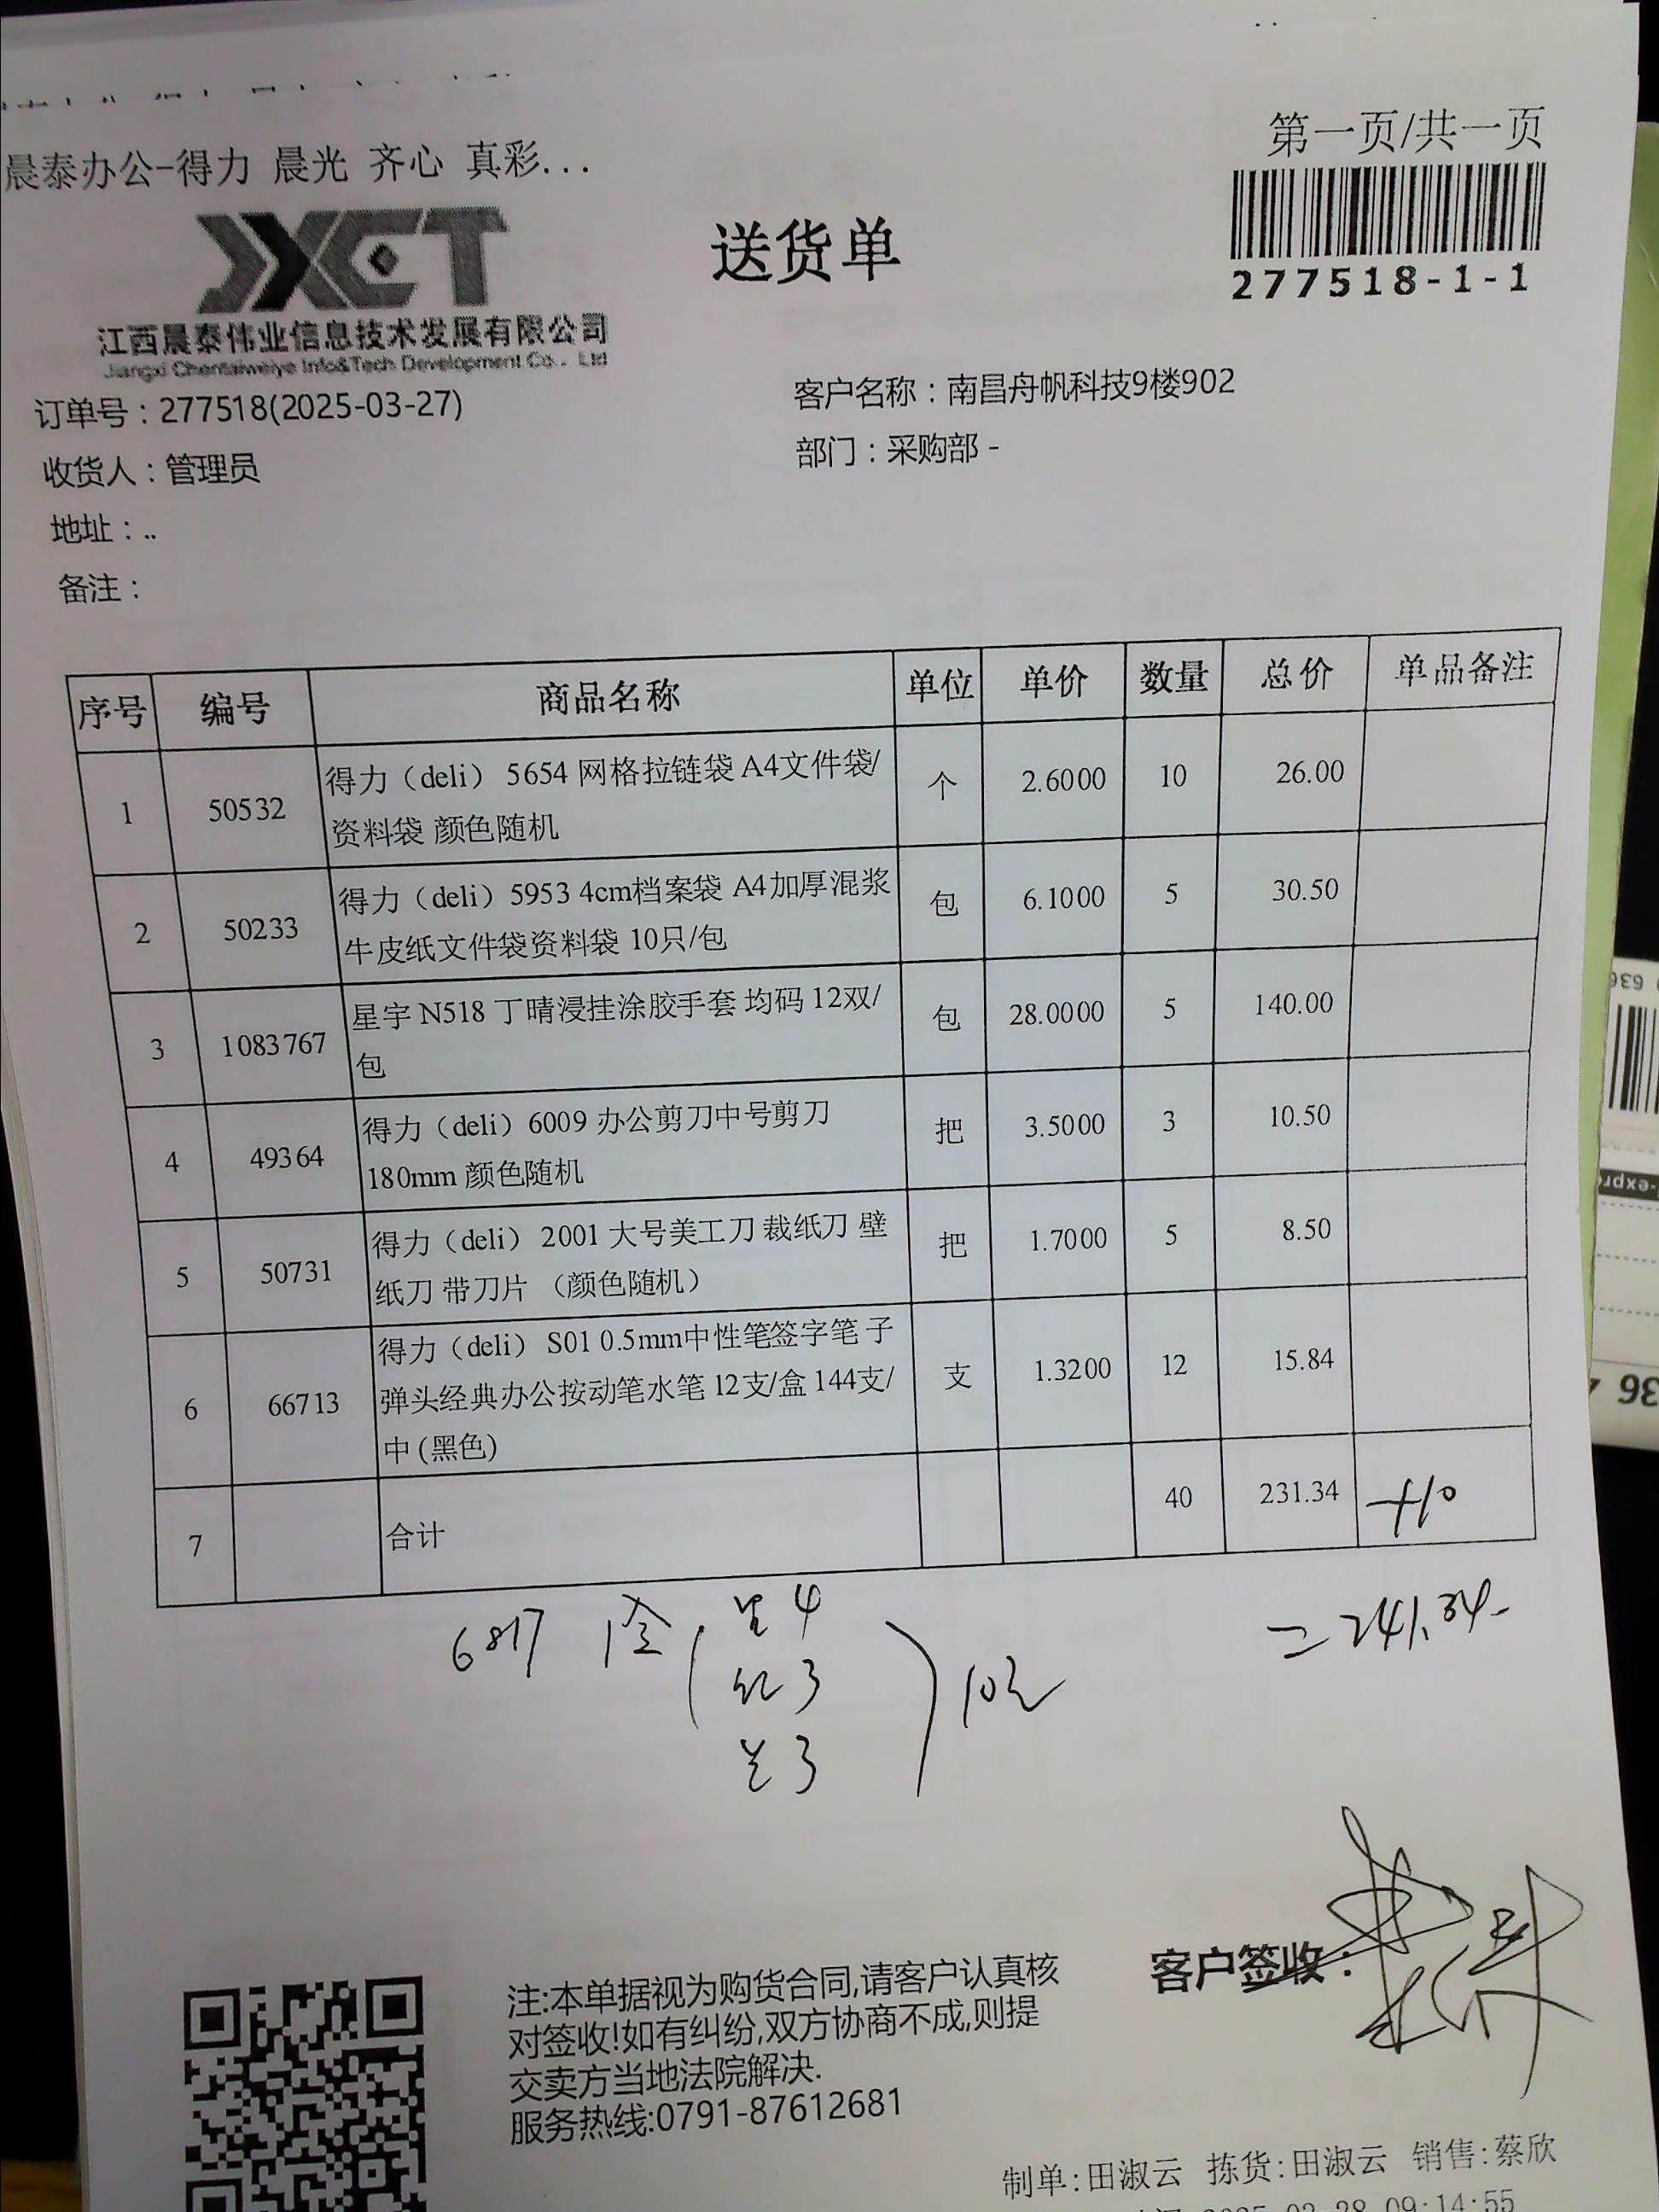 晨泰办公-得力 晨光 齐心 真彩...
第一页/共一页
JXCT
送货单
277518-1-1
江西晨泰伟业信息技术发展有限公司
Jiangxi Chentaiweiye Info&Tech Development Co., Ltd
订单号：277518(2025-03-27)
客户名称：南昌舟帆科技9楼902
收货人：管理员
部门：采购部 -
地址：..
备注：
序号 编号 商品名称 单位 单价 数量 总价 单品备注
1 50532 得力（deli） 5654 网格拉链袋 A4文件袋/ 个 2.6000 10 26.00
资料袋 颜色随机
2 50233 得力（deli）5953 4cm档案袋 A4加厚混浆 包 6.1000 5 30.50
牛皮纸文件袋资料袋 10只/包
3 1083767 星宇 N518 丁晴浸挂涂胶手套 均码 12双/ 包 28.0000 5 140.00
包
4 49364 得力（deli）6009 办公剪刀中号剪刀 把 3.5000 3 10.50
180mm 颜色随机
5 50731 得力（deli） 2001 大号美工刀 裁纸刀 壁 把 1.7000 5 8.50
纸刀 带刀片 （颜色随机）
6 66713 得力（deli） S01 0.5mm中性笔签字笔 子 支 1.3200 12 15.84
弹头经典办公按动笔水笔 12支/盒 144支/
中 (黑色)
7 合计 40 231.34 +10
6817 1盒 ( 黑4
红3
兰3 ) 10元
=241.34
注:本单据视为购货合同,请客户认真核
对签收!如有纠纷,双方协商不成,则提
交卖方当地法院解决.
服务热线:0791-87612681
客户签收：
制单:田淑云 拣货:田淑云 销售:蔡欣
2025-03-28 09:14:55
636
-expr
36